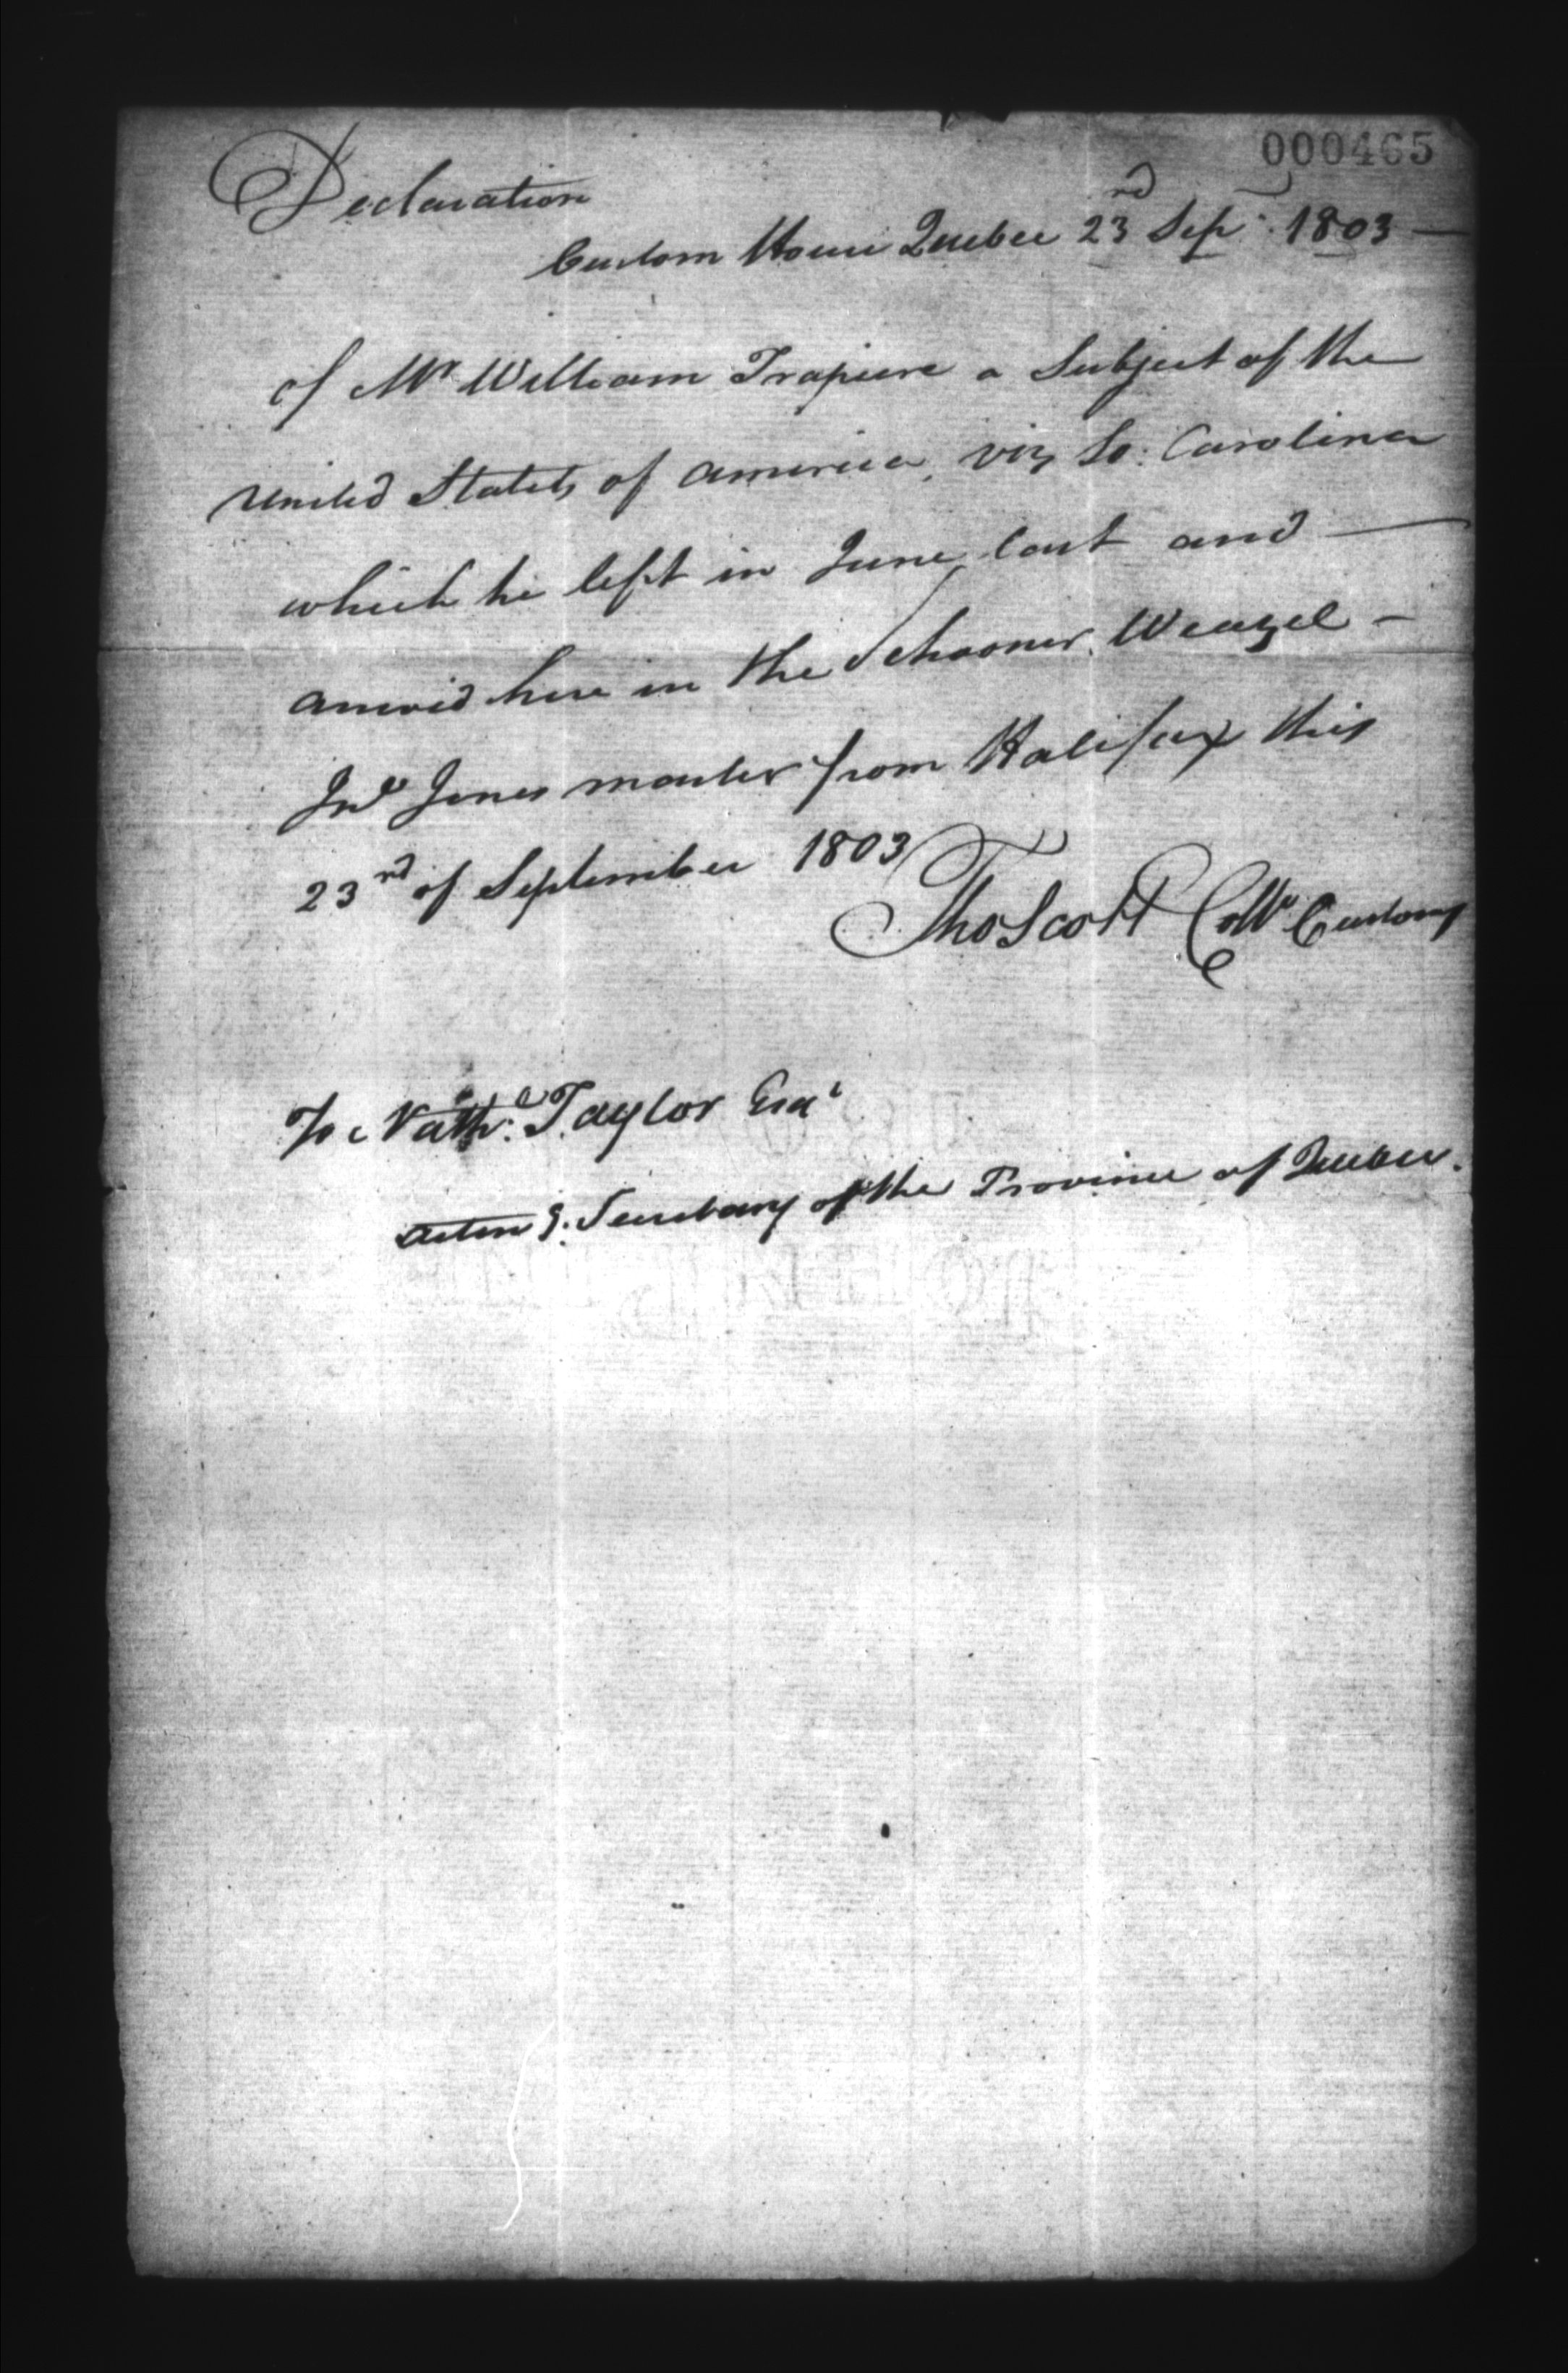 000465
Declaration
Custom House Quebec 23rd Sepr. 1803 —
of Mr William Trapiere a Subject of the
United States of america, viz So: Carolina
which he left in June last and —
arrived here in the Schooner Weazel —
Jno Jones master from Halifax this
23rd of September 1803
Thos Scott Collr Customs
To Nathl. Taylor Esqr
acting. Secretary of the Province of Quebec.